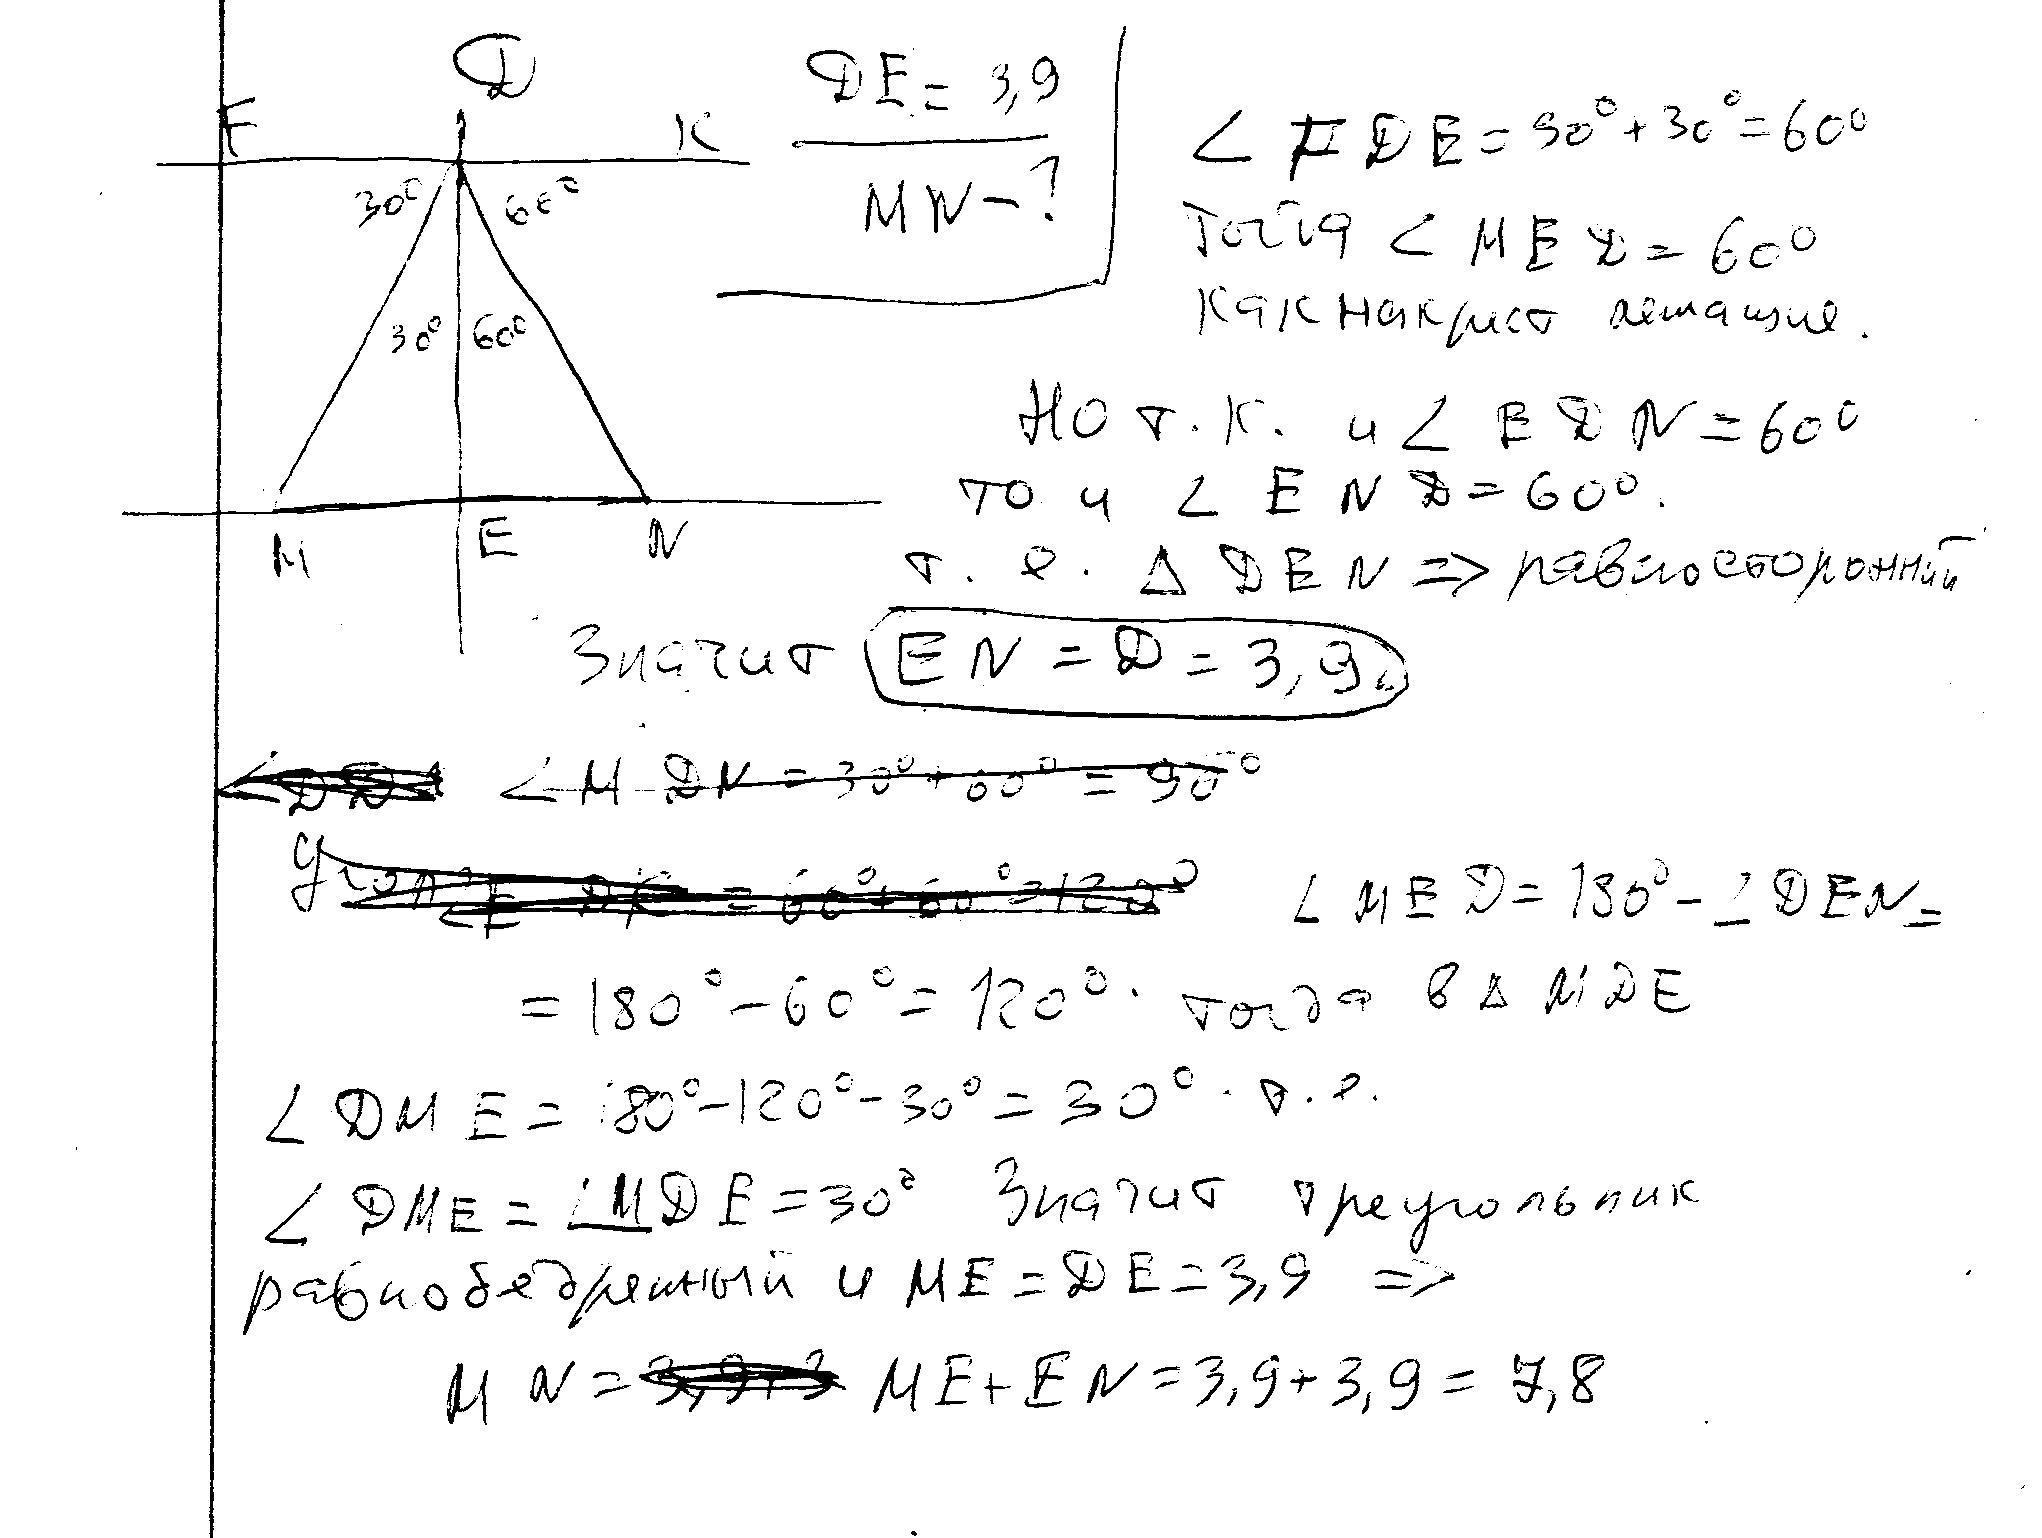 D
F K
30° 60°
30° 60°
M E N
DE = 3,9
MN - ?
∠ FDE = 30° + 30° = 60°
тогда ∠ MED = 60°
как накрест лежащие.
Но т.к. и ∠ EDN = 60°
то и ∠ END = 60°.
т.е. Δ DEN => равносторонний
Значит EN = D = 3,9.
∠ MDN = 30° + 60° = 90°
Угол EDK = 60° + 60° = 120°
∠ MED = 180° - ∠ DEN =
= 180° - 60° = 120°. тогда в Δ MDE
∠ DME = 180° - 120° - 30° = 30°. т.е.
∠ DME = ∠MDE = 30° Значит треугольник
равнобедренный и ME = DE = 3,9 =>
MN = 3,9+3 ME + EN = 3,9 + 3,9 = 7,8